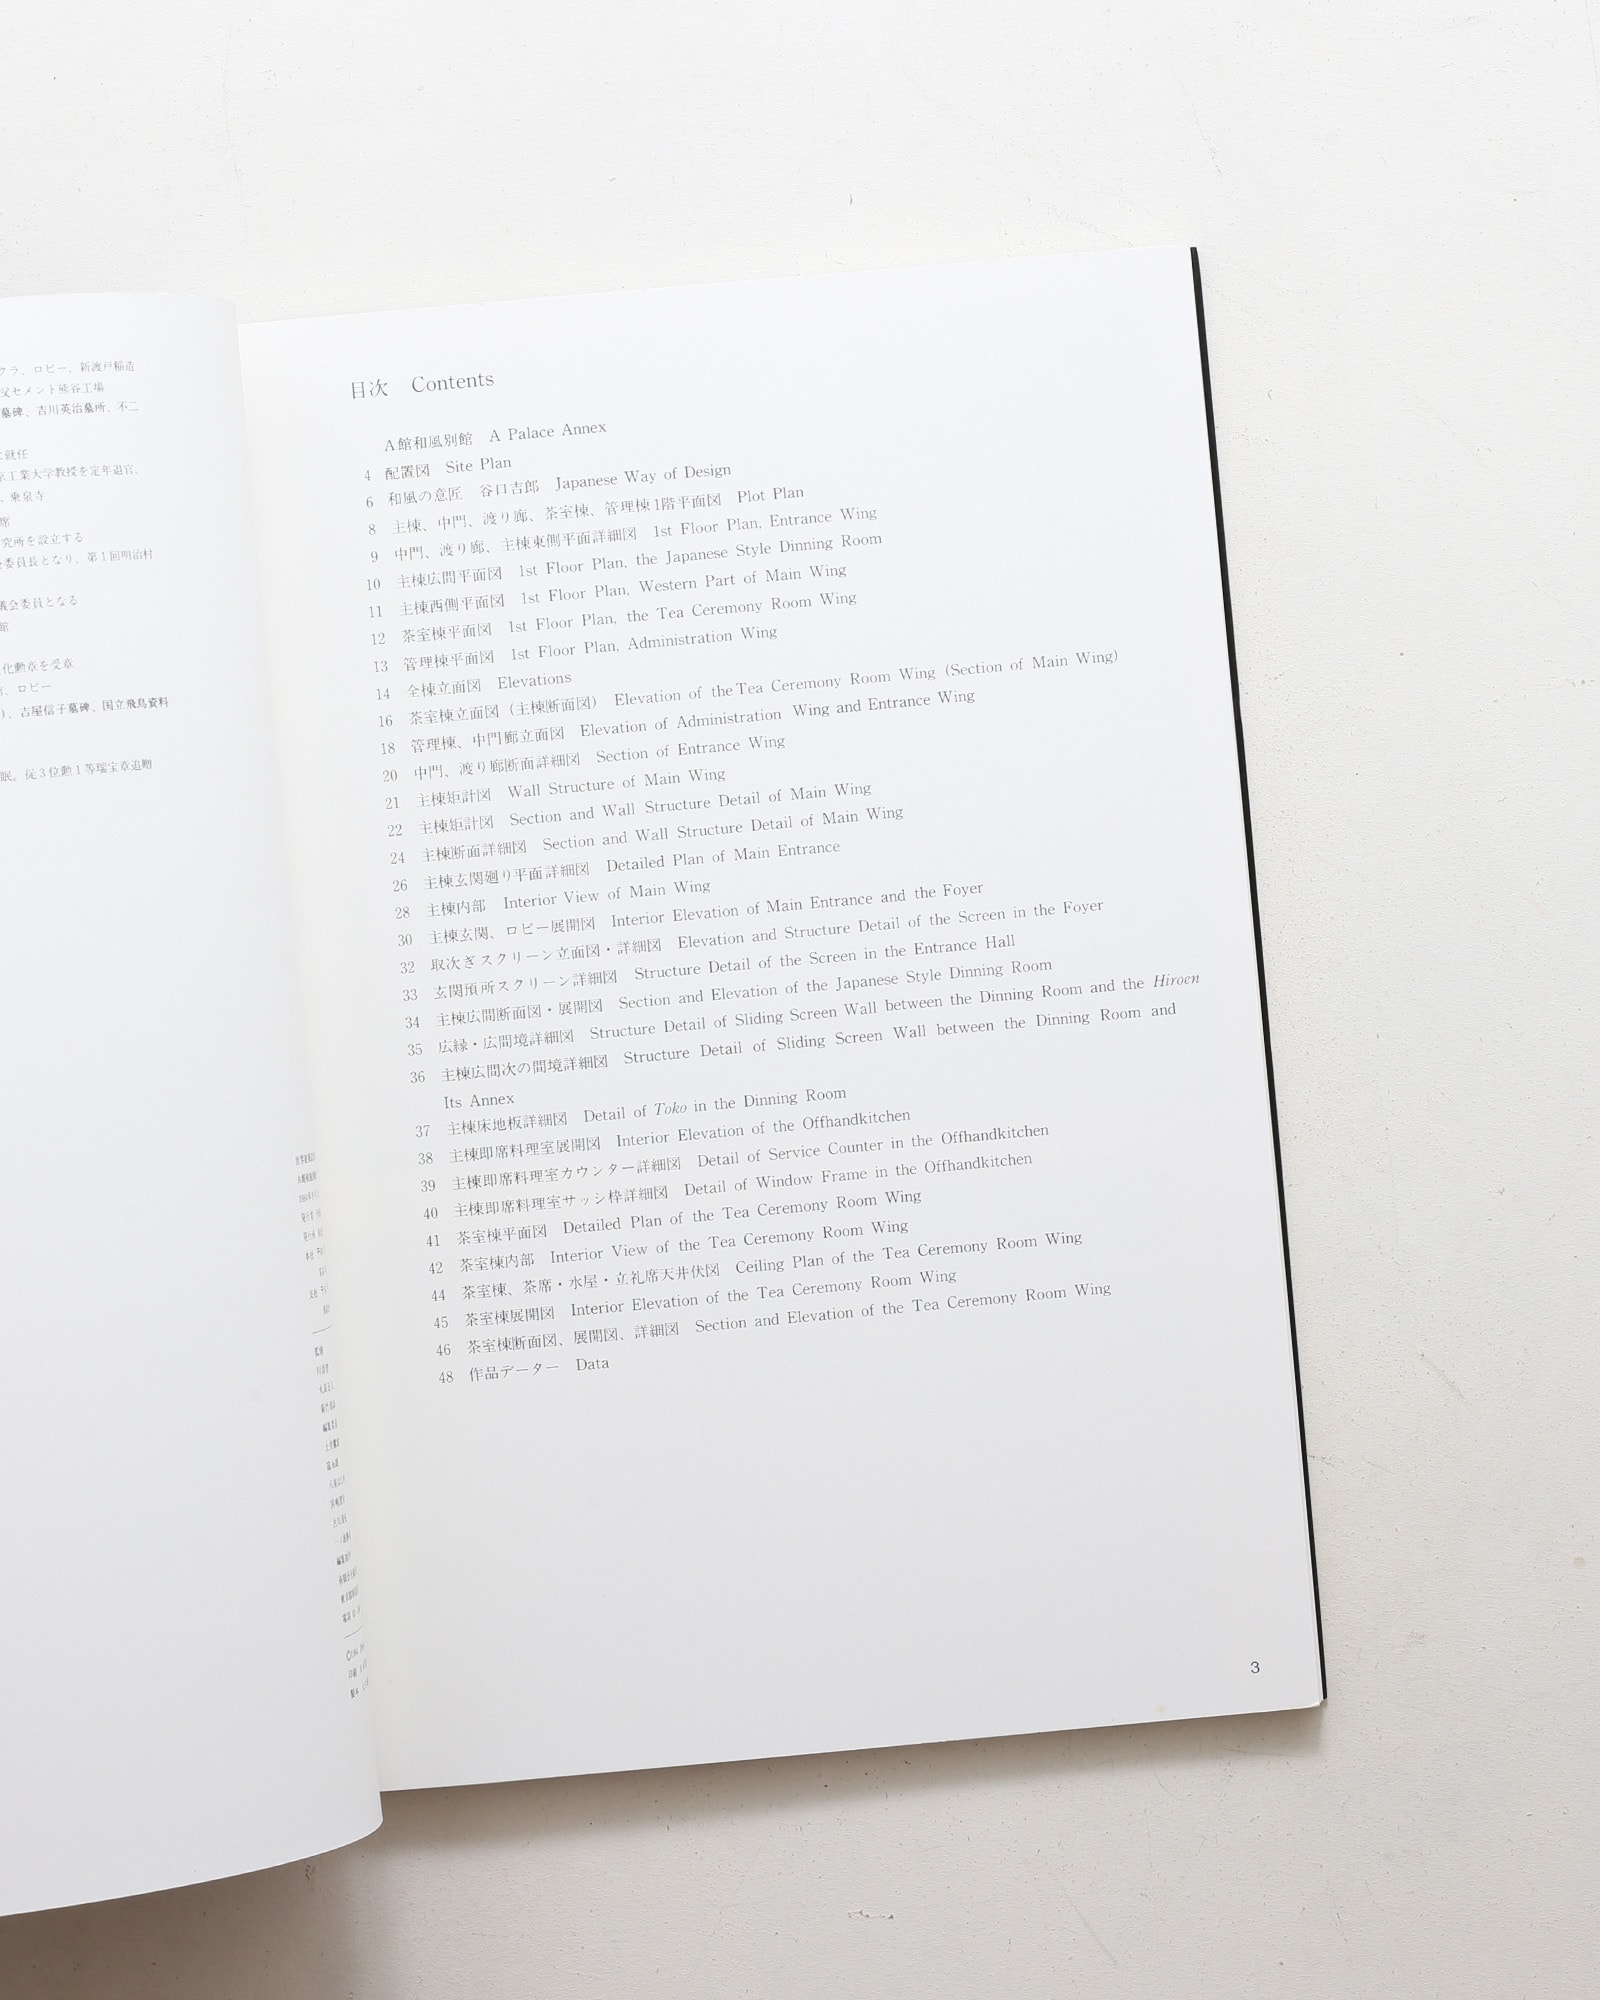 クラ、ロビー、新渡戸稲造
父セメント熊谷工場
墓碑、吉川英治墓所、不二
に就任
京工業大学教授を定年退官、
、乗泉寺
席
究所を設立する
委員長となり、第1回明治村
議会委員となる
館
化勲章を受章
、ロビー
)、吉屋信子墓碑、国立飛鳥資料
眠。従3位勲1等瑞宝章追贈
目次 Contents
A館和風別館 A Palace Annex
4 配置図 Site Plan
6 和風の意匠 谷口吉郎 Japanese Way of Design
8 主棟、中門、渡り廊、茶室棟、管理棟1階平面図 Plot Plan
9 中門、渡り廊、主棟東側平面詳細図 1st Floor Plan, Entrance Wing
10 主棟広間平面図 1st Floor Plan, the Japanese Style Dinning Room
11 主棟西側平面図 1st Floor Plan, Western Part of Main Wing
12 茶室棟平面図 1st Floor Plan, the Tea Ceremony Room Wing
13 管理棟平面図 1st Floor Plan, Administration Wing
14 全棟立面図 Elevations
16 茶室棟立面図（主棟断面図） Elevation of the Tea Ceremony Room Wing (Section of Main Wing)
18 管理棟、中門廊立面図 Elevation of Administration Wing and Entrance Wing
20 中門、渡り廊断面詳細図 Section of Entrance Wing
21 主棟矩計図 Wall Structure of Main Wing
22 主棟矩計図 Section and Wall Structure Detail of Main Wing
24 主棟断面詳細図 Section and Wall Structure Detail of Main Wing
26 主棟玄関廻り平面詳細図 Detailed Plan of Main Entrance
28 主棟内部 Interior View of Main Wing
30 主棟玄関、ロビー展開図 Interior Elevation of Main Entrance and the Foyer
32 取次ぎスクリーン立面図・詳細図 Elevation and Structure Detail of the Screen in the Foyer
33 玄関預所スクリーン詳細図 Structure Detail of the Screen in the Entrance Hall
34 主棟広間断面図・展開図 Section and Elevation of the Japanese Style Dinning Room
35 広縁・広間境詳細図 Structure Detail of Sliding Screen Wall between the Dinning Room and the Hiroen
36 主棟広間次の間境詳細図 Structure Detail of Sliding Screen Wall between the Dinning Room and
Its Annex
37 主棟床地板詳細図 Detail of Toko in the Dinning Room
38 主棟即席料理室展開図 Interior Elevation of the Offhandkitchen
39 主棟即席料理室カウンター詳細図 Detail of Service Counter in the Offhandkitchen
40 主棟即席料理室サッシ枠詳細図 Detail of Window Frame in the Offhandkitchen
41 茶室棟平面図 Detailed Plan of the Tea Ceremony Room Wing
42 茶室棟内部 Interior View of the Tea Ceremony Room Wing
44 茶室棟、茶席・水屋・立礼席天井伏図 Ceiling Plan of the Tea Ceremony Room Wing
45 茶室棟展開図 Interior Elevation of the Tea Ceremony Room Wing
46 茶室棟断面図、展開図、詳細図 Section and Elevation of the Tea Ceremony Room Wing
48 作品データー Data
3